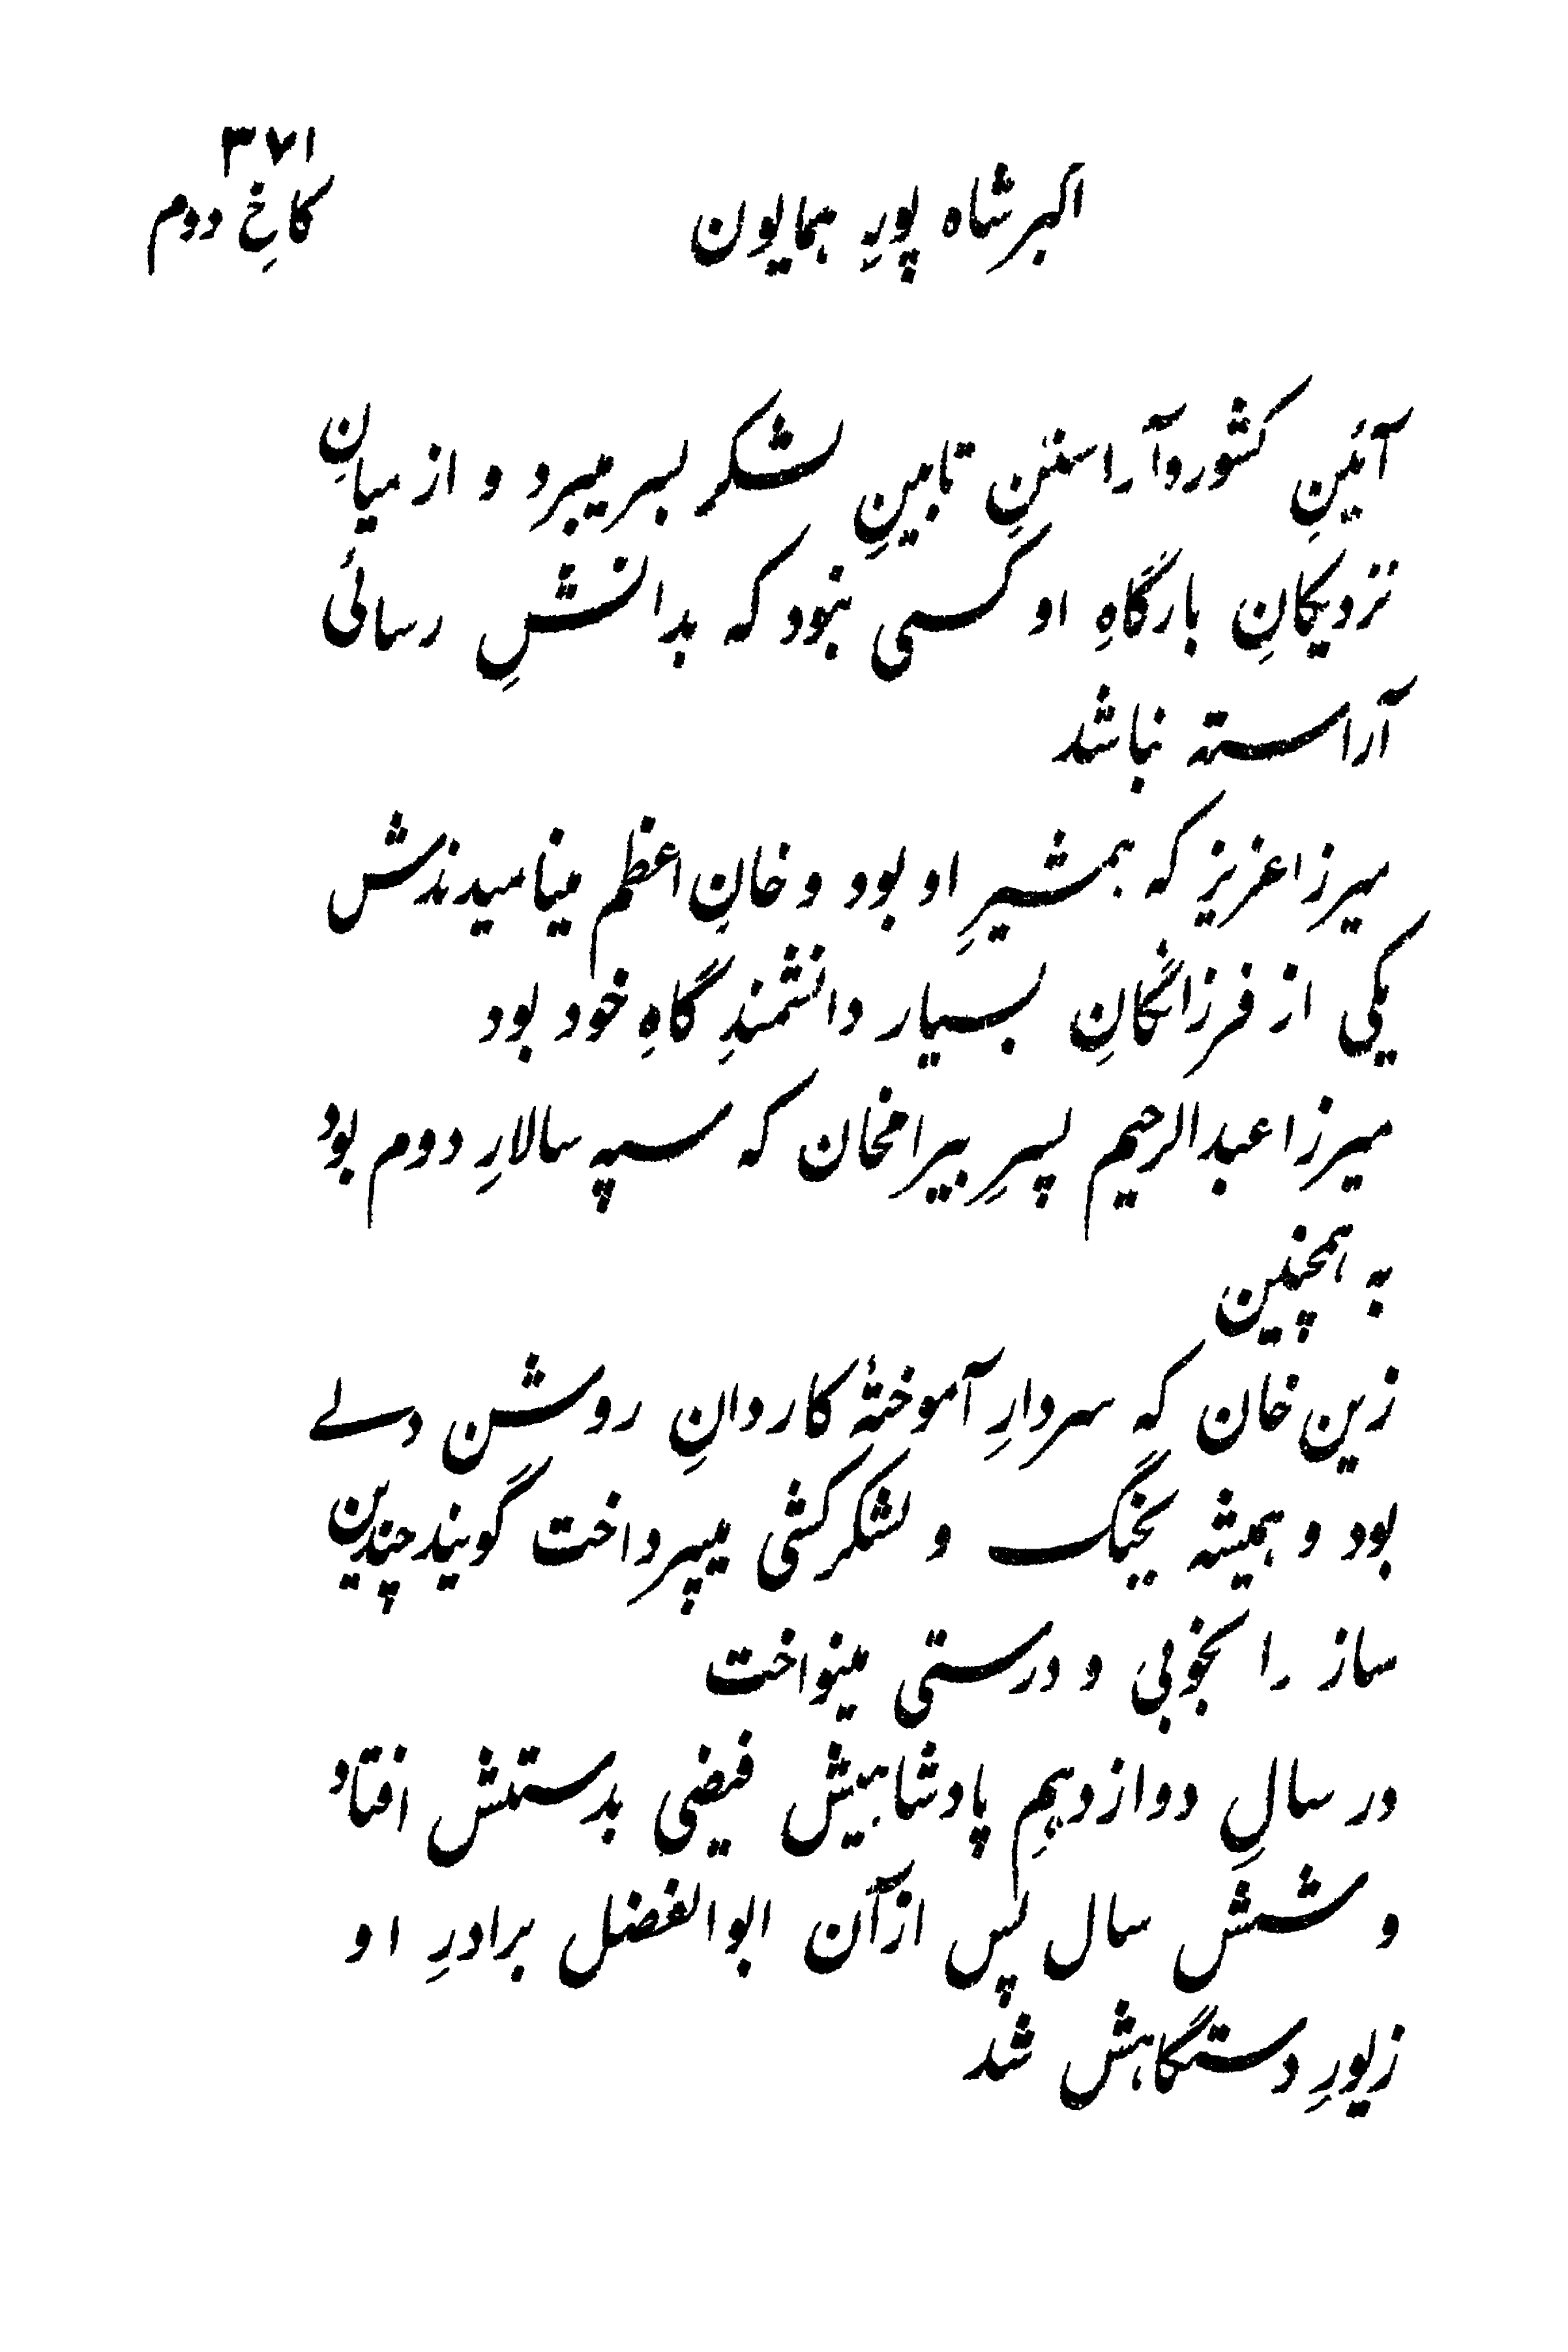 ۳۷۱
اکبر شاه پورِ همایون
کاخِ دوم
آئینِ کشور و آراستنِ تابینِ لشکر بسر میبرد و از میانِ
نزدیکانِ بارگاهِ او کسی نبود که بدانشِ رسائی
آراسته نباشد
میرزا عزیز که همشیرِ او بود و خانِ اعظم مینامیدندش
یکی از فرزانگانِ بسیار دانشمندِ گاهِ خود بود
میرزا عبدالرحیم پسرِ بیرامخان که سپه سالارِ دوم بود
به همچنین
زین خان که سردارِ آموختهٔ کاردانِ روشن دلے
بود و همیشه بجنگ و لشکرکشی میپرداخت گویند چندین
ساز را بخوبی و درستی مینواخت
در سالِ دوازدهمِ پادشاهیش فیضی بدستش افتاد
و شش سال پس از آن ابوالفضل برادرِ او
زیورِ دستگاهش شد